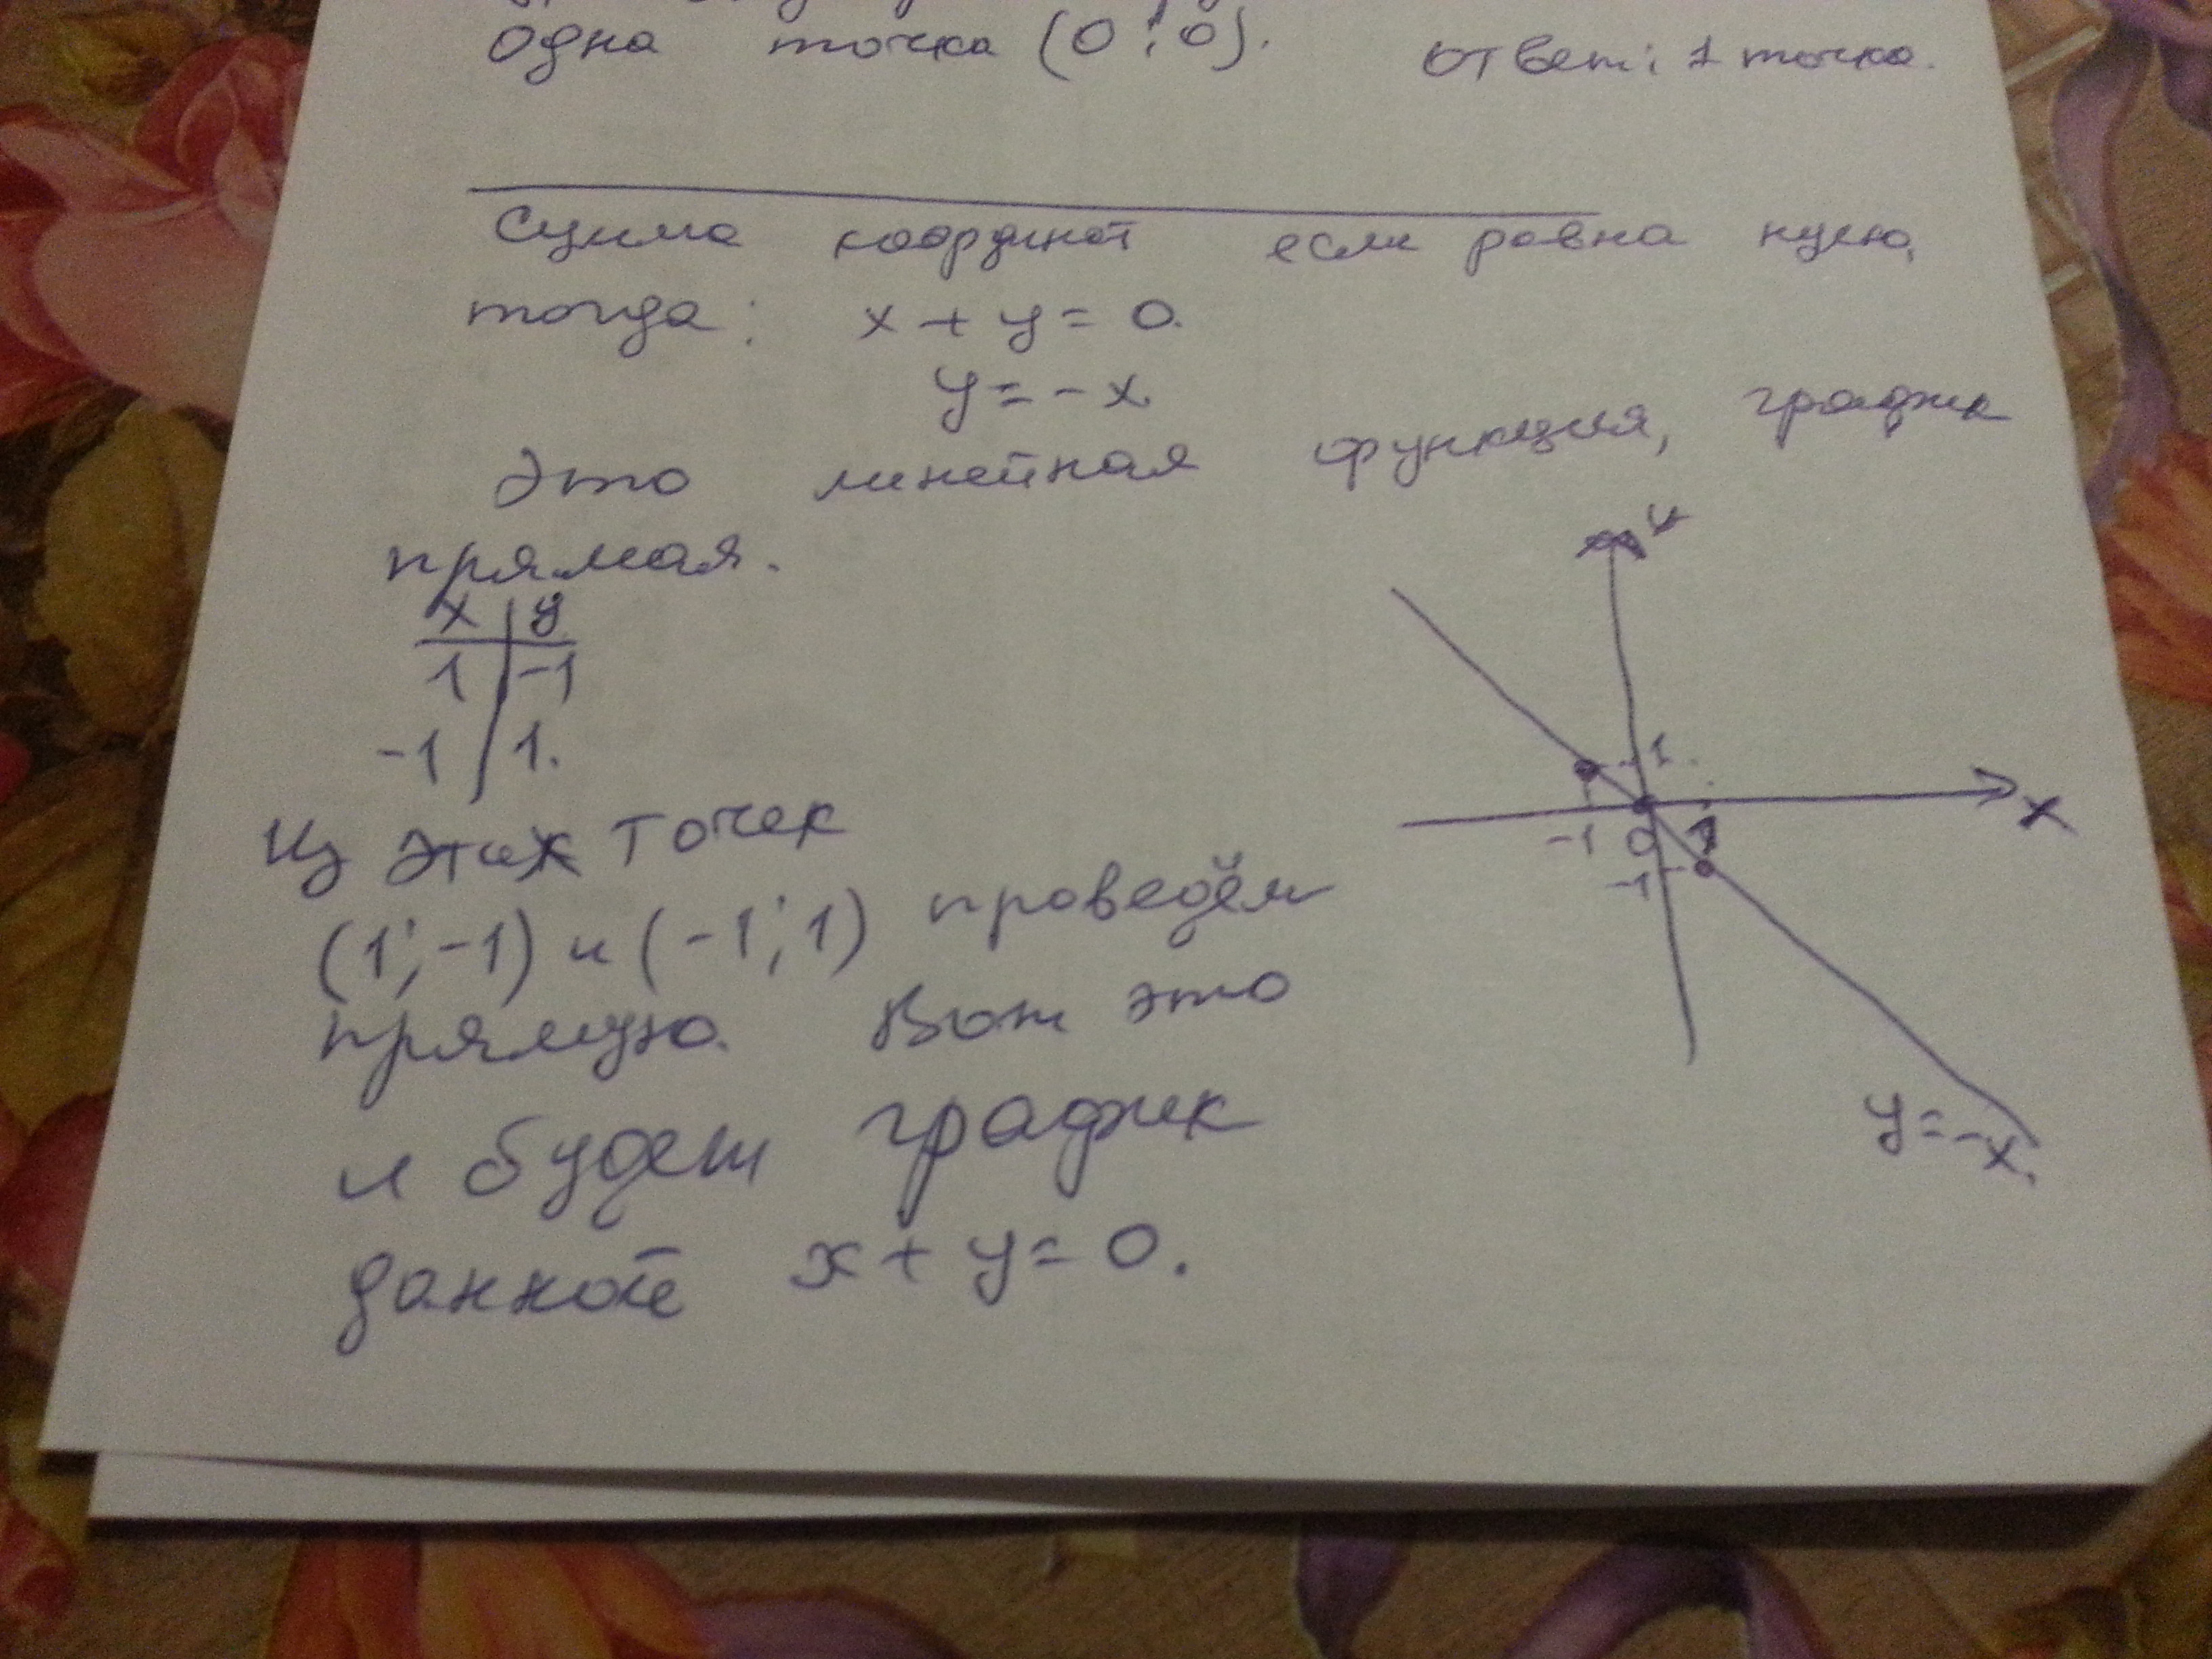 одна точка (0;0). Ответ: 1 точка.
Сумма координат если равна нулю,
тогда: x + y = 0.
y = - x
Это линейная функция, график
прямая.
x | y
1 | -1
-1 | 1.
Из этих точек
(1;-1) и (-1;1) проведём
прямую. Вот это
и будет график
данной x + y = 0.
y
1
x
-1 0 1
-1
y = -x.